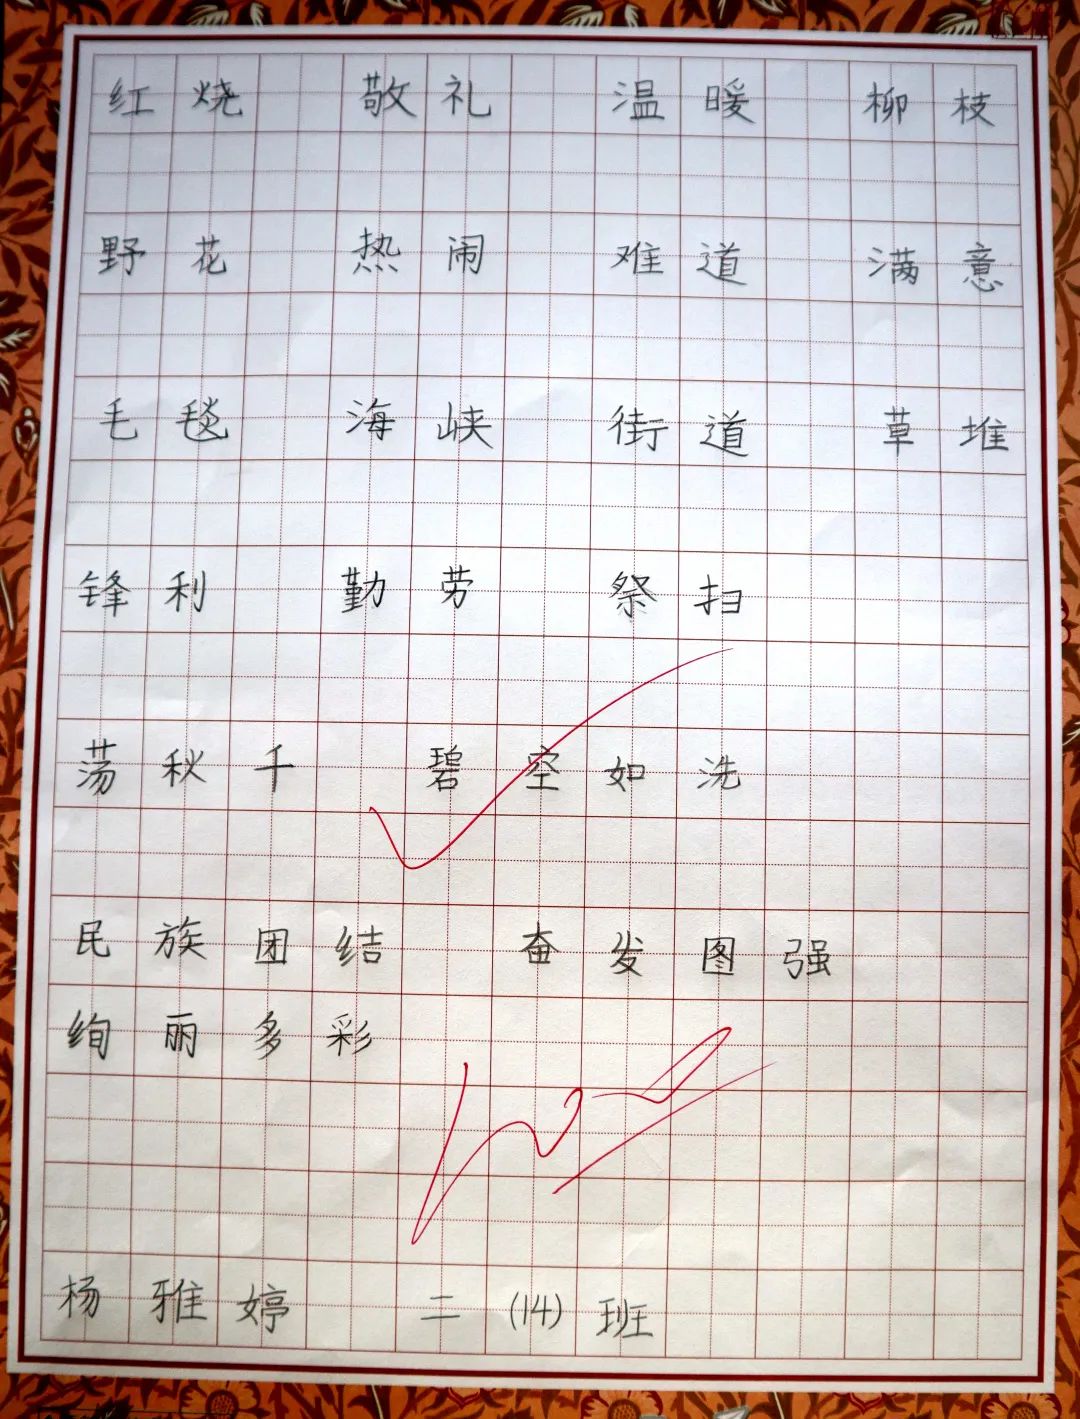 红烧 敬礼 温暖 柳枝
野花 热闹 难道 满意
毛毯 海峡 街道 草堆
锋利 勤劳 祭扫
荡秋千 碧空如洗
民族团结 奋发图强
绚丽多彩
100
杨雅婷 二(14)班